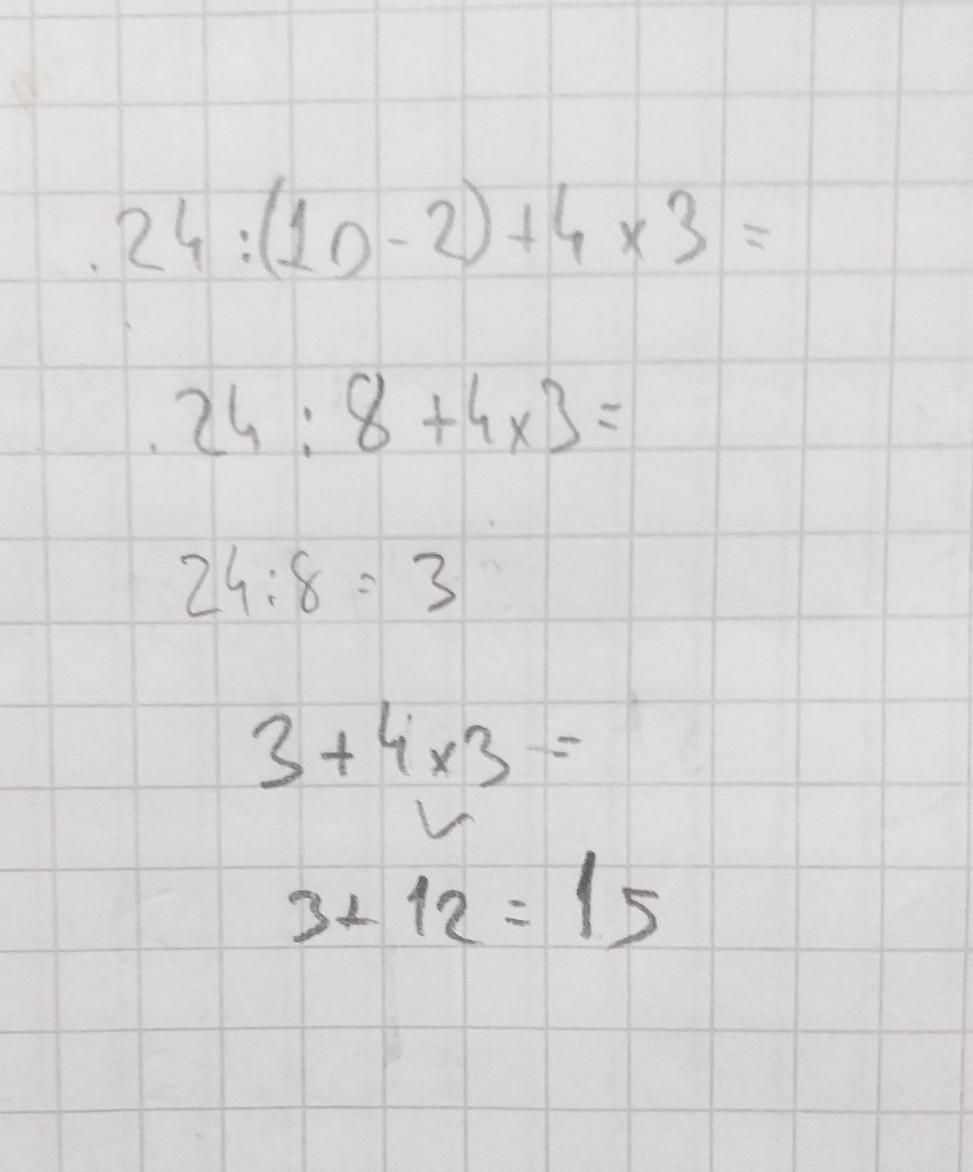 24:(10-2)+4x3=
24:8+4x3=
24:8=3
3+4x3=
3+12=15